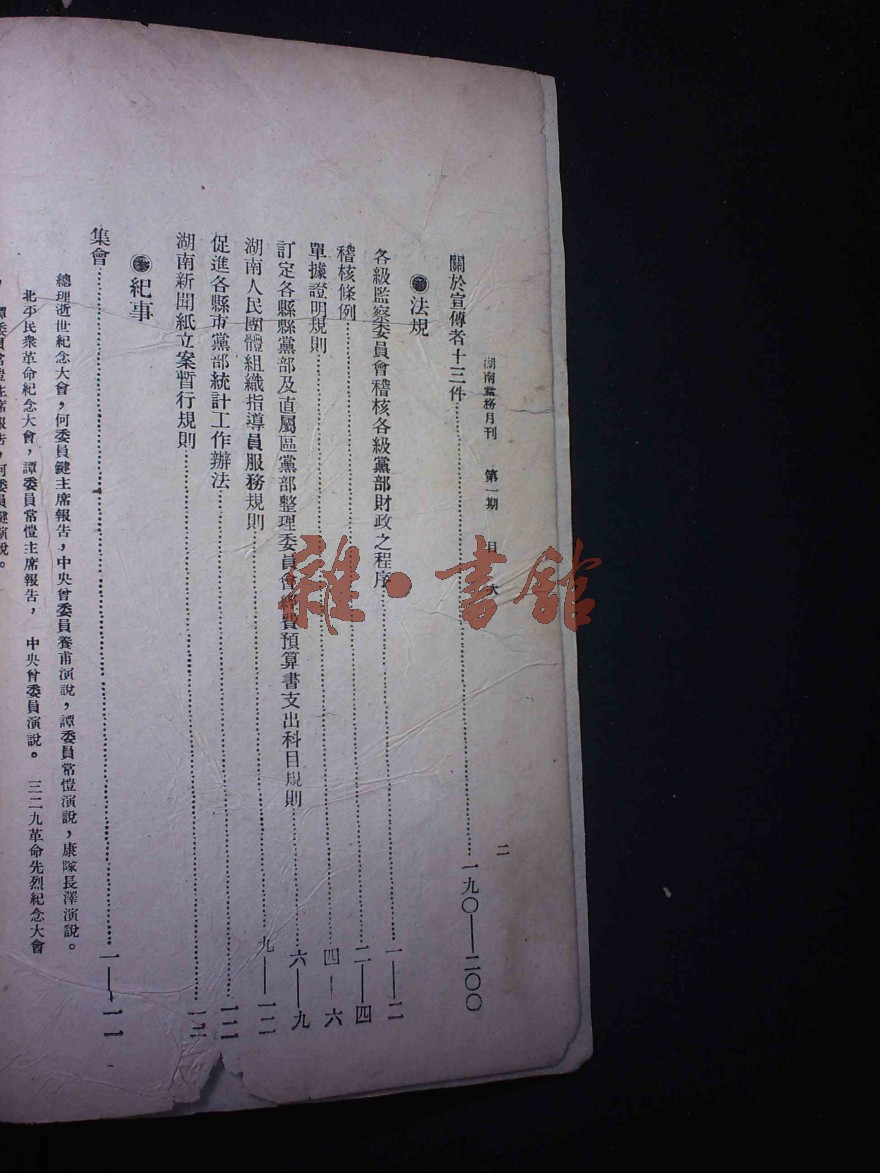 湖南黨務月刊 第一期 目次 二
關於宣傳者十三件…一九〇—二〇〇
法規
各級監察委員會稽核各級黨部財政之程序…一—二
稽核條例…二—四
單據證明規則…四—六
訂定各縣縣黨部及直屬區黨部整理委員會經費預算書支出科目規則…六—九
湖南人民團體組織指導員服務規則…九—一二
促進各縣市黨部統計工作辦法…一二
湖南新聞紙立案暫行規則…一三
紀事
集會…一—一一
總理逝世紀念大會，何委員鍵主席報告，中央曾委員養甫演說，譚委員常愷演說，康隊長澤演說。
北平民衆革命紀念大會，譚委員常愷主席報告，中央曾委員演說。 三二九革命先烈紀念大會
，譚委員常愷主席報告，何委員鍵演說。
雜·書館